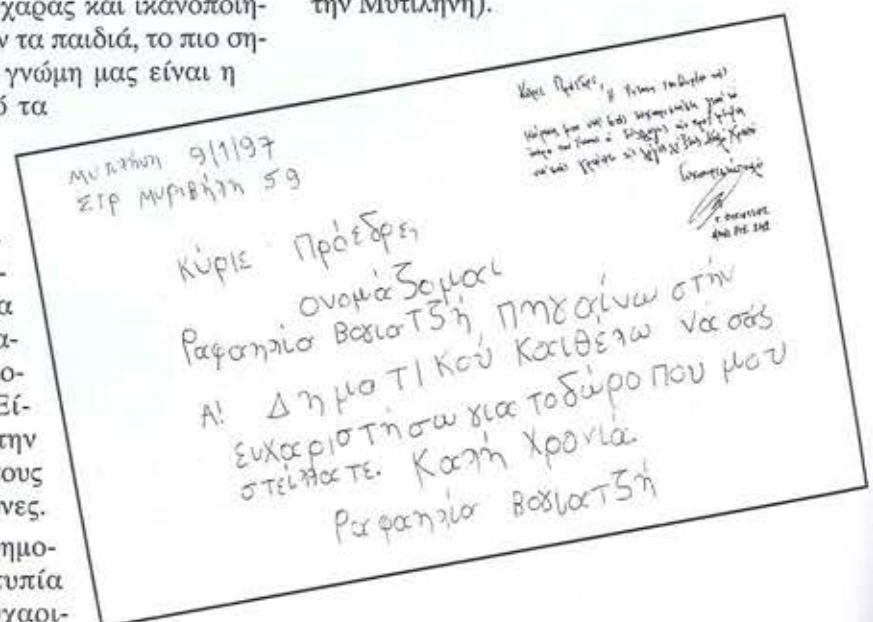 χαράς και ικανοποίη-
ν τα παιδιά, το πιο ση-
γνώμη μας είναι η
ό τα
α
α-
ο-
Εί-
την
ους
νες.
ημο-
τυπία
υχαρι-
την Μυτιλήνη).
Μυτιλήνη 9/1/97
ΣΤΡ ΜυριΒήλη 59
Κύριε Πρόεδρε,
ονομάζομαι
Ραφαηλία Βογιατζή πηγαίνω στήν
Α! Δημοτικού Καιθέλω νά σάς
ευχαριστήσω για τοδώρο που μου
στείλλατε. Καλή Χρονιά.
Ραφαηλία Βογιατζή
Κύριε Πρόεδρε,